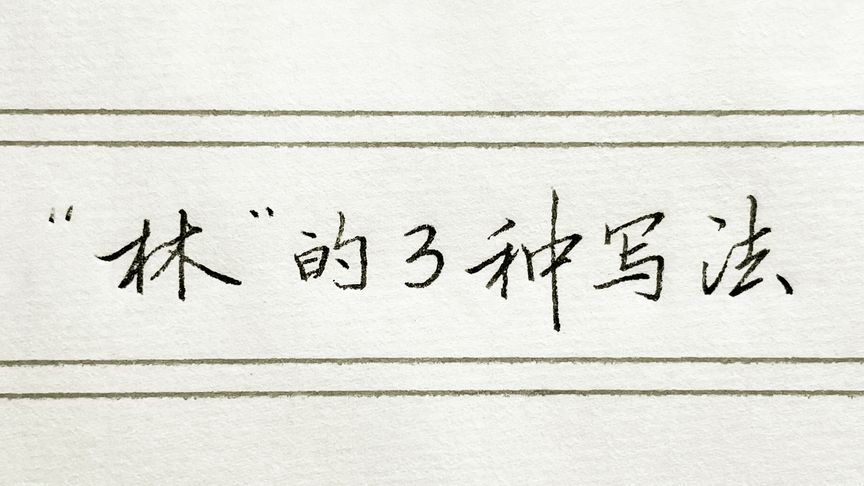 “林”的3种写法